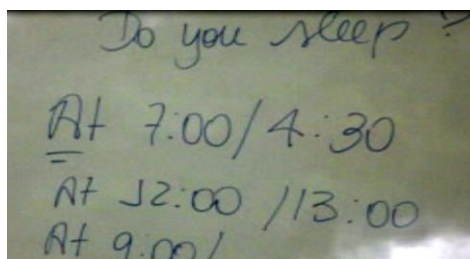 Do you sleep ?
At 7:00/4:30
At 12:00 /13:00
At 9:00/